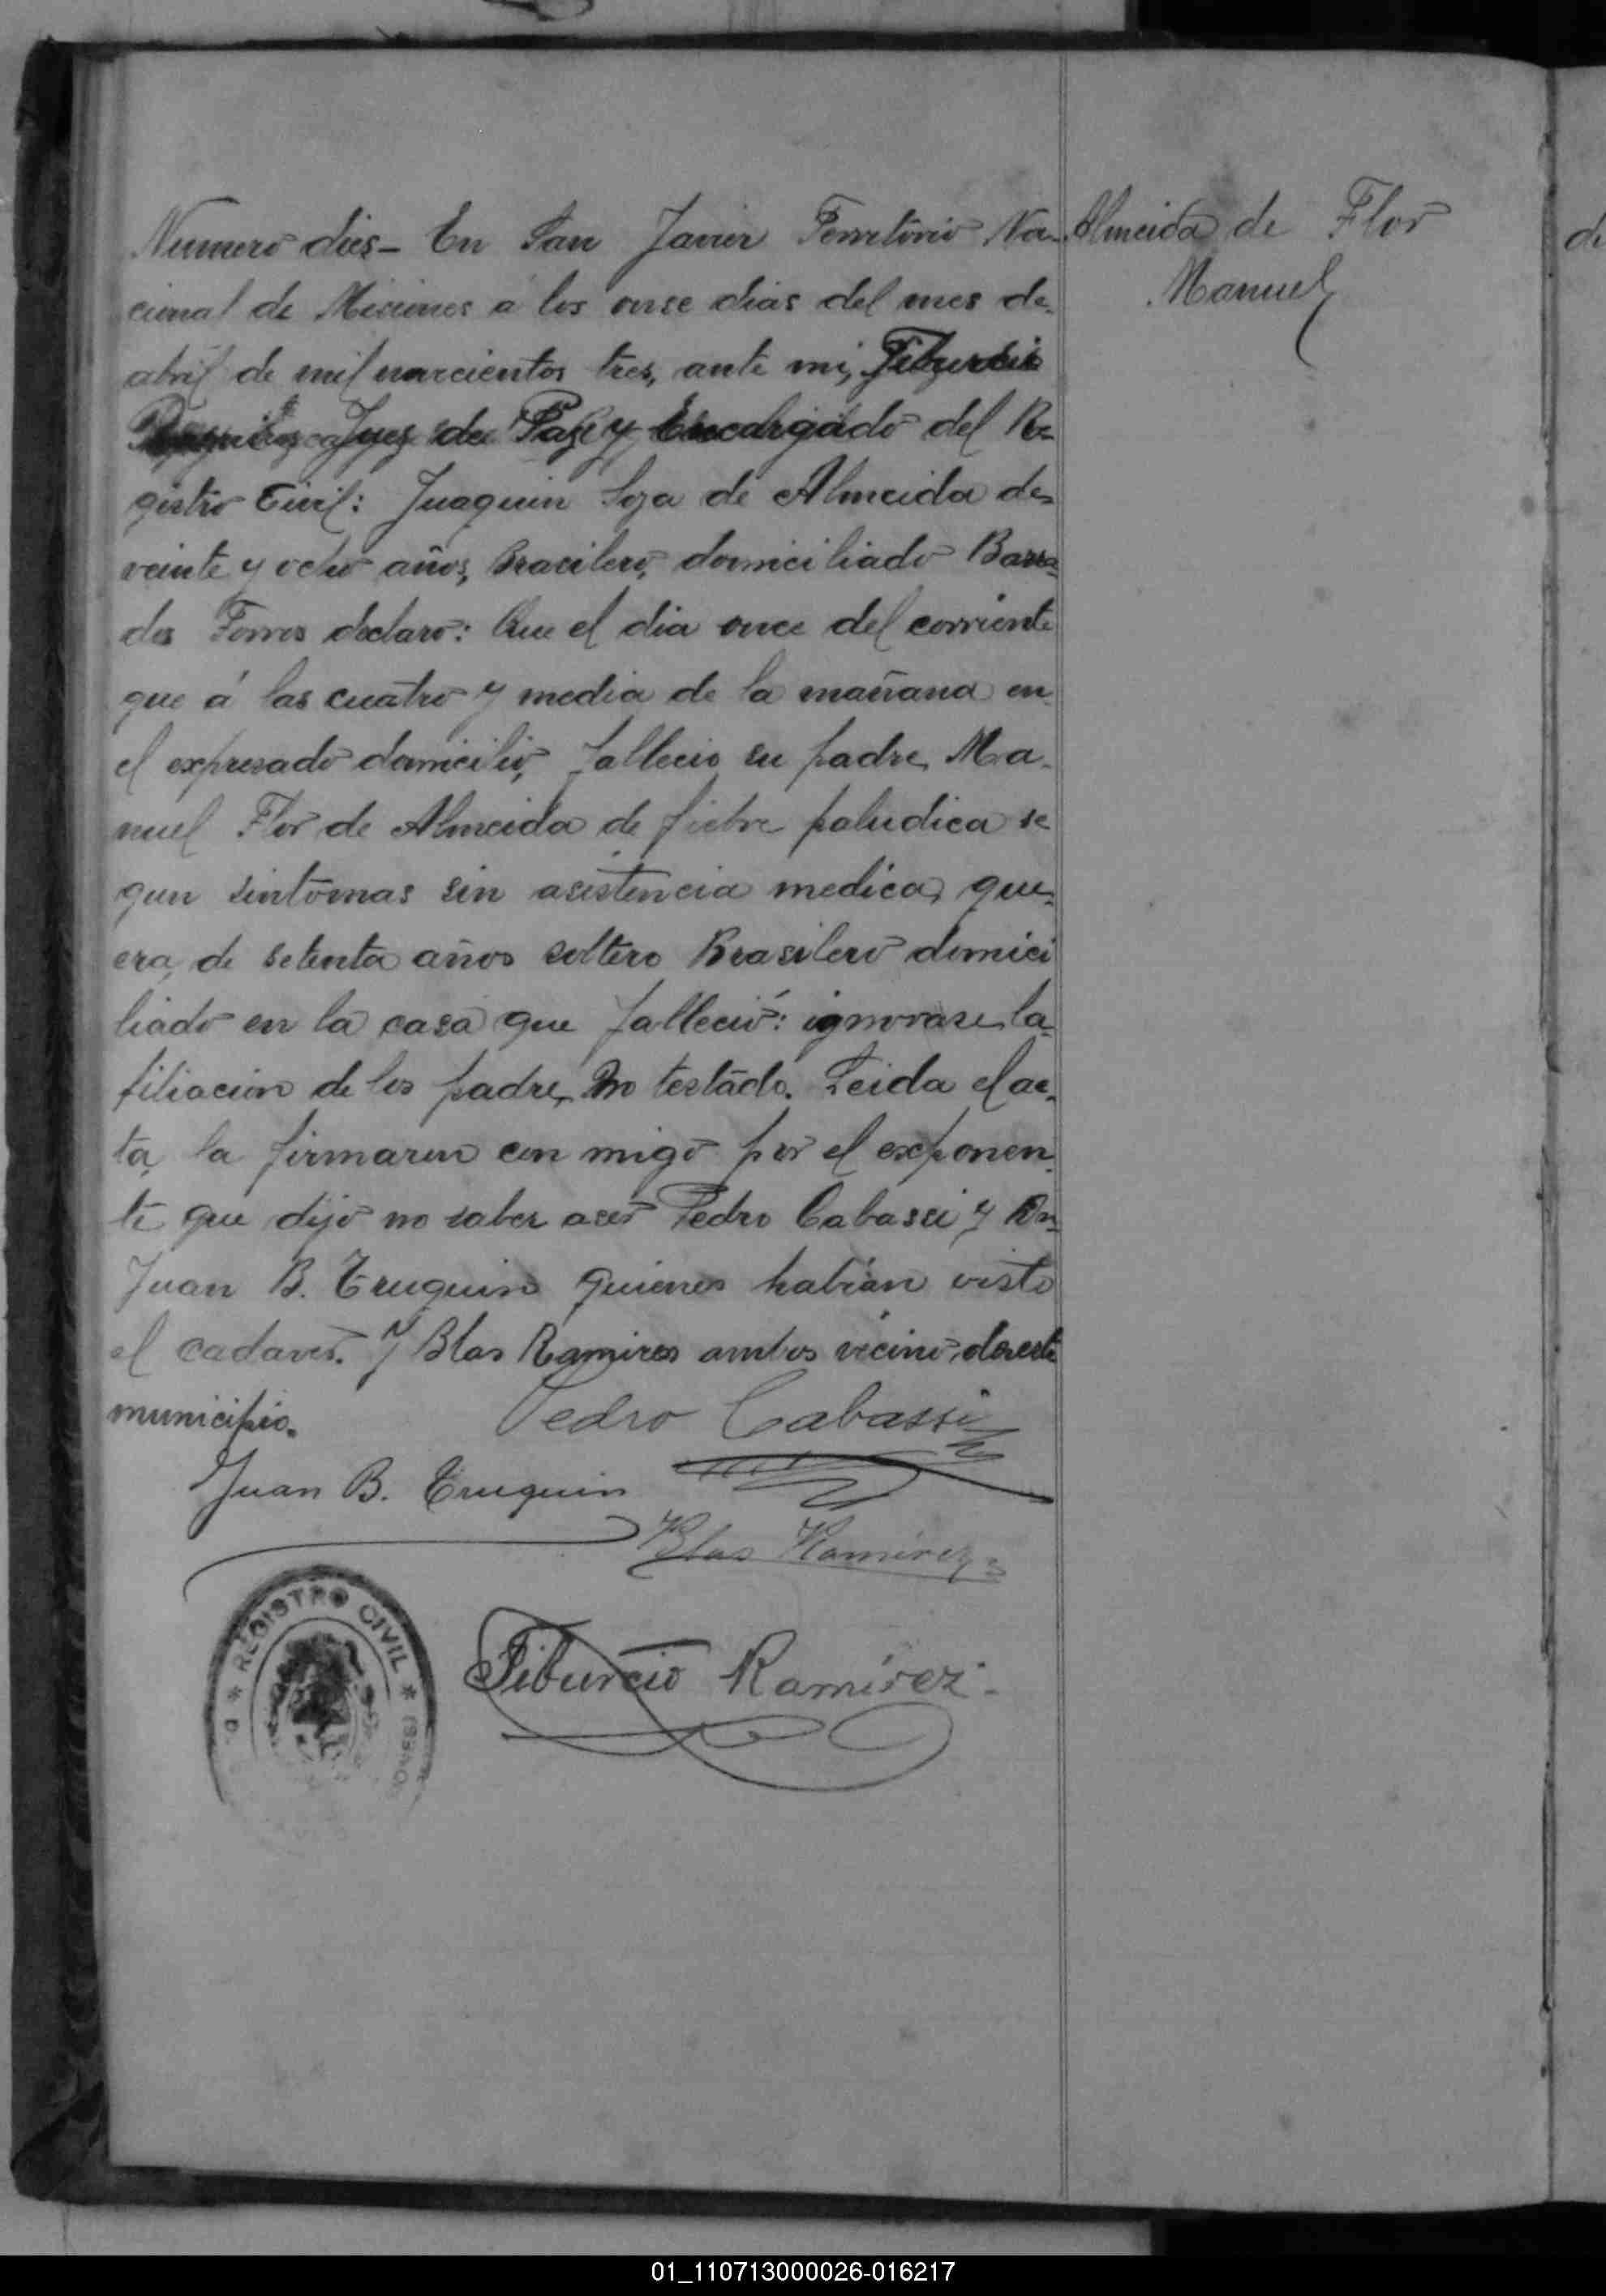 Numero dies- En San Javier Territorio Na-
cional de Misiones á los onse dias del mes de
abril de mil novecientos tres, ante mi, Tiburcio
Juez de Paz y Encargado del Re-
gistro Civil: Juaquin de Almeida de
veinte y ocho años, Bracilero, domiciliado Barra
dos Torros declaro: Que el dia once del corriente
que á las cuatro y media de la mañana en
el expresado domicilio, fallecio su padre Ma-
nuel Flor de Almeida de fiebre paludica se
gun sintomas sin asistencia medica, que
era de setenta años soltero Brasilero domici
liado en la casa que falleció: ignorase la
filiacion de los padre, no testado. Leida el ac-
ta, la firmaron con migo por el exponen-
te que dijo no saber aser Pedro Cabassi y Dn
Juan B. Truquin quienes habian visto
el cadaver. Y Blas Ramires ambos vecino de este
municipio.
Pedro Cabassi
Juan B. Truquin
Blas Ramirez
Tiburcio Ramirez
REGISTRO CIVIL
Almeida de Flor
Manuel
de
01_110713000026-016217